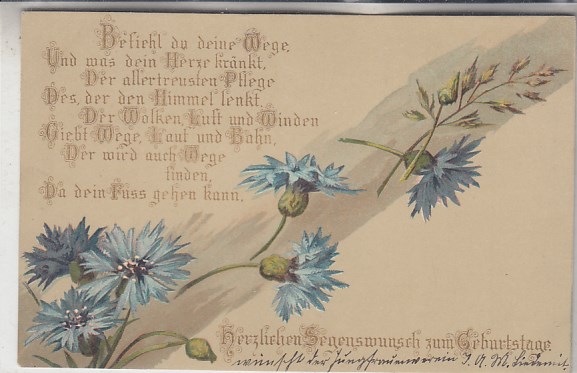 Befiehl du deine Wege,
Und was dein Herze kränkt,
Der allertreusten Pflege
Des, der den Himmel lenkt.
Der Wolken, Luft und Winden
Giebt Wege, Lauf und Bahn,
Der wird auch Wege
finden,
Da dein Fuss gehen kann.
Herzlichen Segenswunsch zum Geburtstage
wünscht der Jungfrauenverein I. A. M.